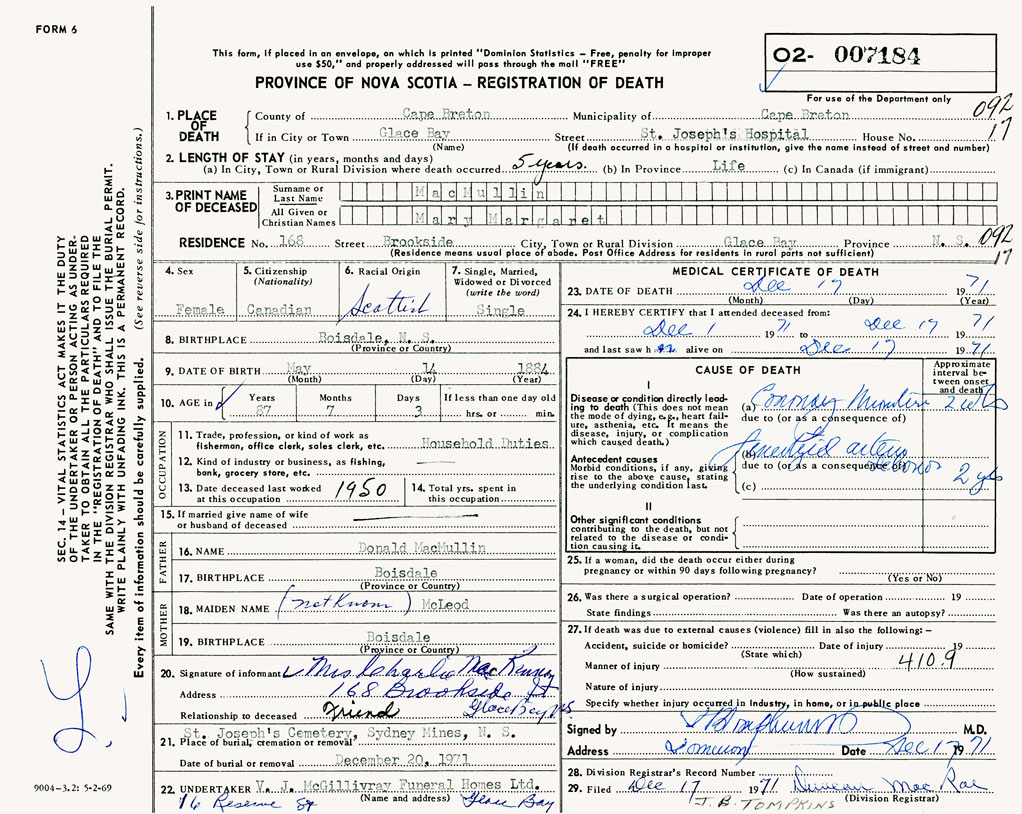 FORM 6
This form, if placed in an envelope, on which is printed "Dominion Statistics – Free, penalty for improper
use $50," and properly addressed will pass through the mail "FREE"
PROVINCE OF NOVA SCOTIA – REGISTRATION OF DEATH
O2- 007184
For use of the Department only
1. PLACE OF DEATH
County of Cape Breton Municipality of Cape Breton 092
If in City or Town Glace Bay Street St. Joseph's Hospital House No. 17
(Name) (If death occurred in a hospital or institution, give the name instead of street and number)
2. LENGTH OF STAY (in years, months and days)
(a) In City, Town or Rural Division where death occurred 5 years. (b) In Province Life (c) In Canada (if immigrant)
3. PRINT NAME OF DECEASED
Surname or Last Name MacMullin
All Given or Christian Names Mary Margaret
RESIDENCE No. 168 Street Brookside City, Town or Rural Division Glace Bay Province N. S. 092
(Residence means usual place of abode. Post Office Address for residents in rural parts not sufficient) 17
4. Sex
Female
5. Citizenship
(Nationality)
Canadian
6. Racial Origin
Scottish
7. Single, Married,
Widowed or Divorced
(write the word)
Single
8. BIRTHPLACE Boisdale, N. S.
(Province or Country)
9. DATE OF BIRTH May 14 1884
(Month) (Day) (Year)
10. AGE in
Years Months Days If less than one day old
87 7 3 hrs. or min.
OCCUPATION
11. Trade, profession, or kind of work as
fisherman, office clerk, sales clerk, etc. Household Duties
12. Kind of industry or business, as fishing,
bank, grocery store, etc.
13. Date deceased last worked
at this occupation 1950
14. Total yrs. spent in
this occupation
15. If married give name of wife
or husband of deceased
FATHER
16. NAME Donald MacMullin
17. BIRTHPLACE Boisdale
(Province or Country)
MOTHER
18. MAIDEN NAME (not Known) McLeod
19. BIRTHPLACE Boisdale
(Province or Country)
20. Signature of informant Mrs Charlie MacKinnon
Address 168 Brookside St
Relationship to deceased Friend Glace Bay NS
St. Joseph's Cemetery, Sydney Mines, N. S.
21. Place of burial, cremation or removal
Date of burial or removal December 20, 1971
22. UNDERTAKER V. J. McGillivray Funeral Homes Ltd.
(Name and address)
16 Reserve St Glace Bay
MEDICAL CERTIFICATE OF DEATH
23. DATE OF DEATH Dec 17 1971
(Month) (Day) (Year)
24. I HEREBY CERTIFY that I attended deceased from:
Dec 1 1971 to Dec 17 1971
and last saw her alive on Dec 17 1971
CAUSE OF DEATH
Approximate
interval be-
tween onset
and death
I
Disease or condition directly lead-
ing to death (This does not mean
the mode of dying, e.g., heart fail-
ure, asthenia, etc. It means the
disease, injury, or complication
which caused death.)
(a) Coronary 2
due to (or as a consequence of)
Antecedent causes
Morbid conditions, if any, giving
rise to the above cause, stating
the underlying condition last.
(b)
due to (or as a consequence of)
(c) 2 yrs
II
Other significant conditions
contributing to the death, but not
related to the disease or condi-
tion causing it.
25. If a woman, did the death occur either during
pregnancy or within 90 days following pregnancy?
(Yes or No)
26. Was there a surgical operation? Date of operation 19
State findings Was there an autopsy?
27. If death was due to external causes (violence) fill in also the following: –
Accident, suicide or homicide? Date of injury 19
(State which)
Manner of injury 410.9
(How sustained)
Nature of injury
Specify whether injury occurred in Industry, in home, or in public place
Signed by M.D.
Address Dominion Date Dec 17 1971
28. Division Registrar's Record Number
29. Filed Dec 17 1971 Duncan MacRae
J. B. TOMPKINS (Division Registrar)
SEC. 14 – VITAL STATISTICS ACT MAKES IT THE DUTY
OF THE UNDERTAKER OR PERSON ACTING AS UNDER-
TAKER TO OBTAIN ALL THE PARTICULARS REQUIRED
IN THE "REGISTRATION OF DEATH" AND TO FILE THE
SAME WITH THE DIVISION REGISTRAR WHO SHALL ISSUE THE BURIAL PERMIT.
WRITE PLAINLY WITH UNFADING INK. THIS IS A PERMANENT RECORD.
Every item of information should be carefully supplied. (See reverse side for instructions.)
9004-3.2: 5-2-69